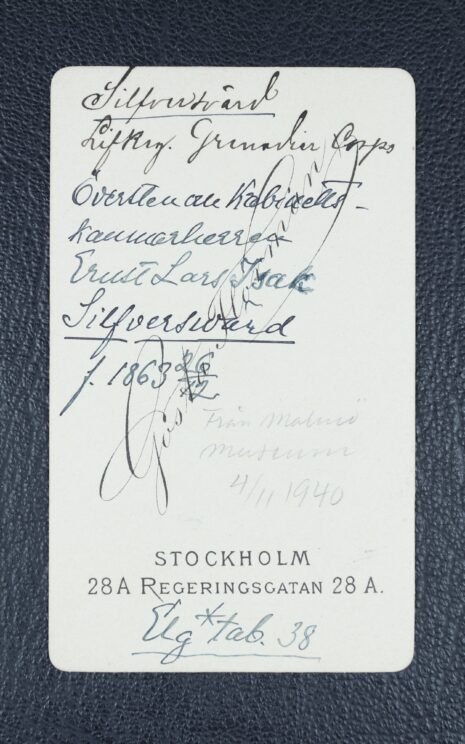 Silfversvärd
Lifreg. Grenadier Corps
Överstten an Kabinetts-
kammarherren
Ernst Lars Isak
Silfverswärd
f. 1863 26/12
Gösta Florman
Från Malmö
Museum
4/11 1940
STOCKHOLM
28A REGERINGSGATAN 28 A.
Elg* tab. 38